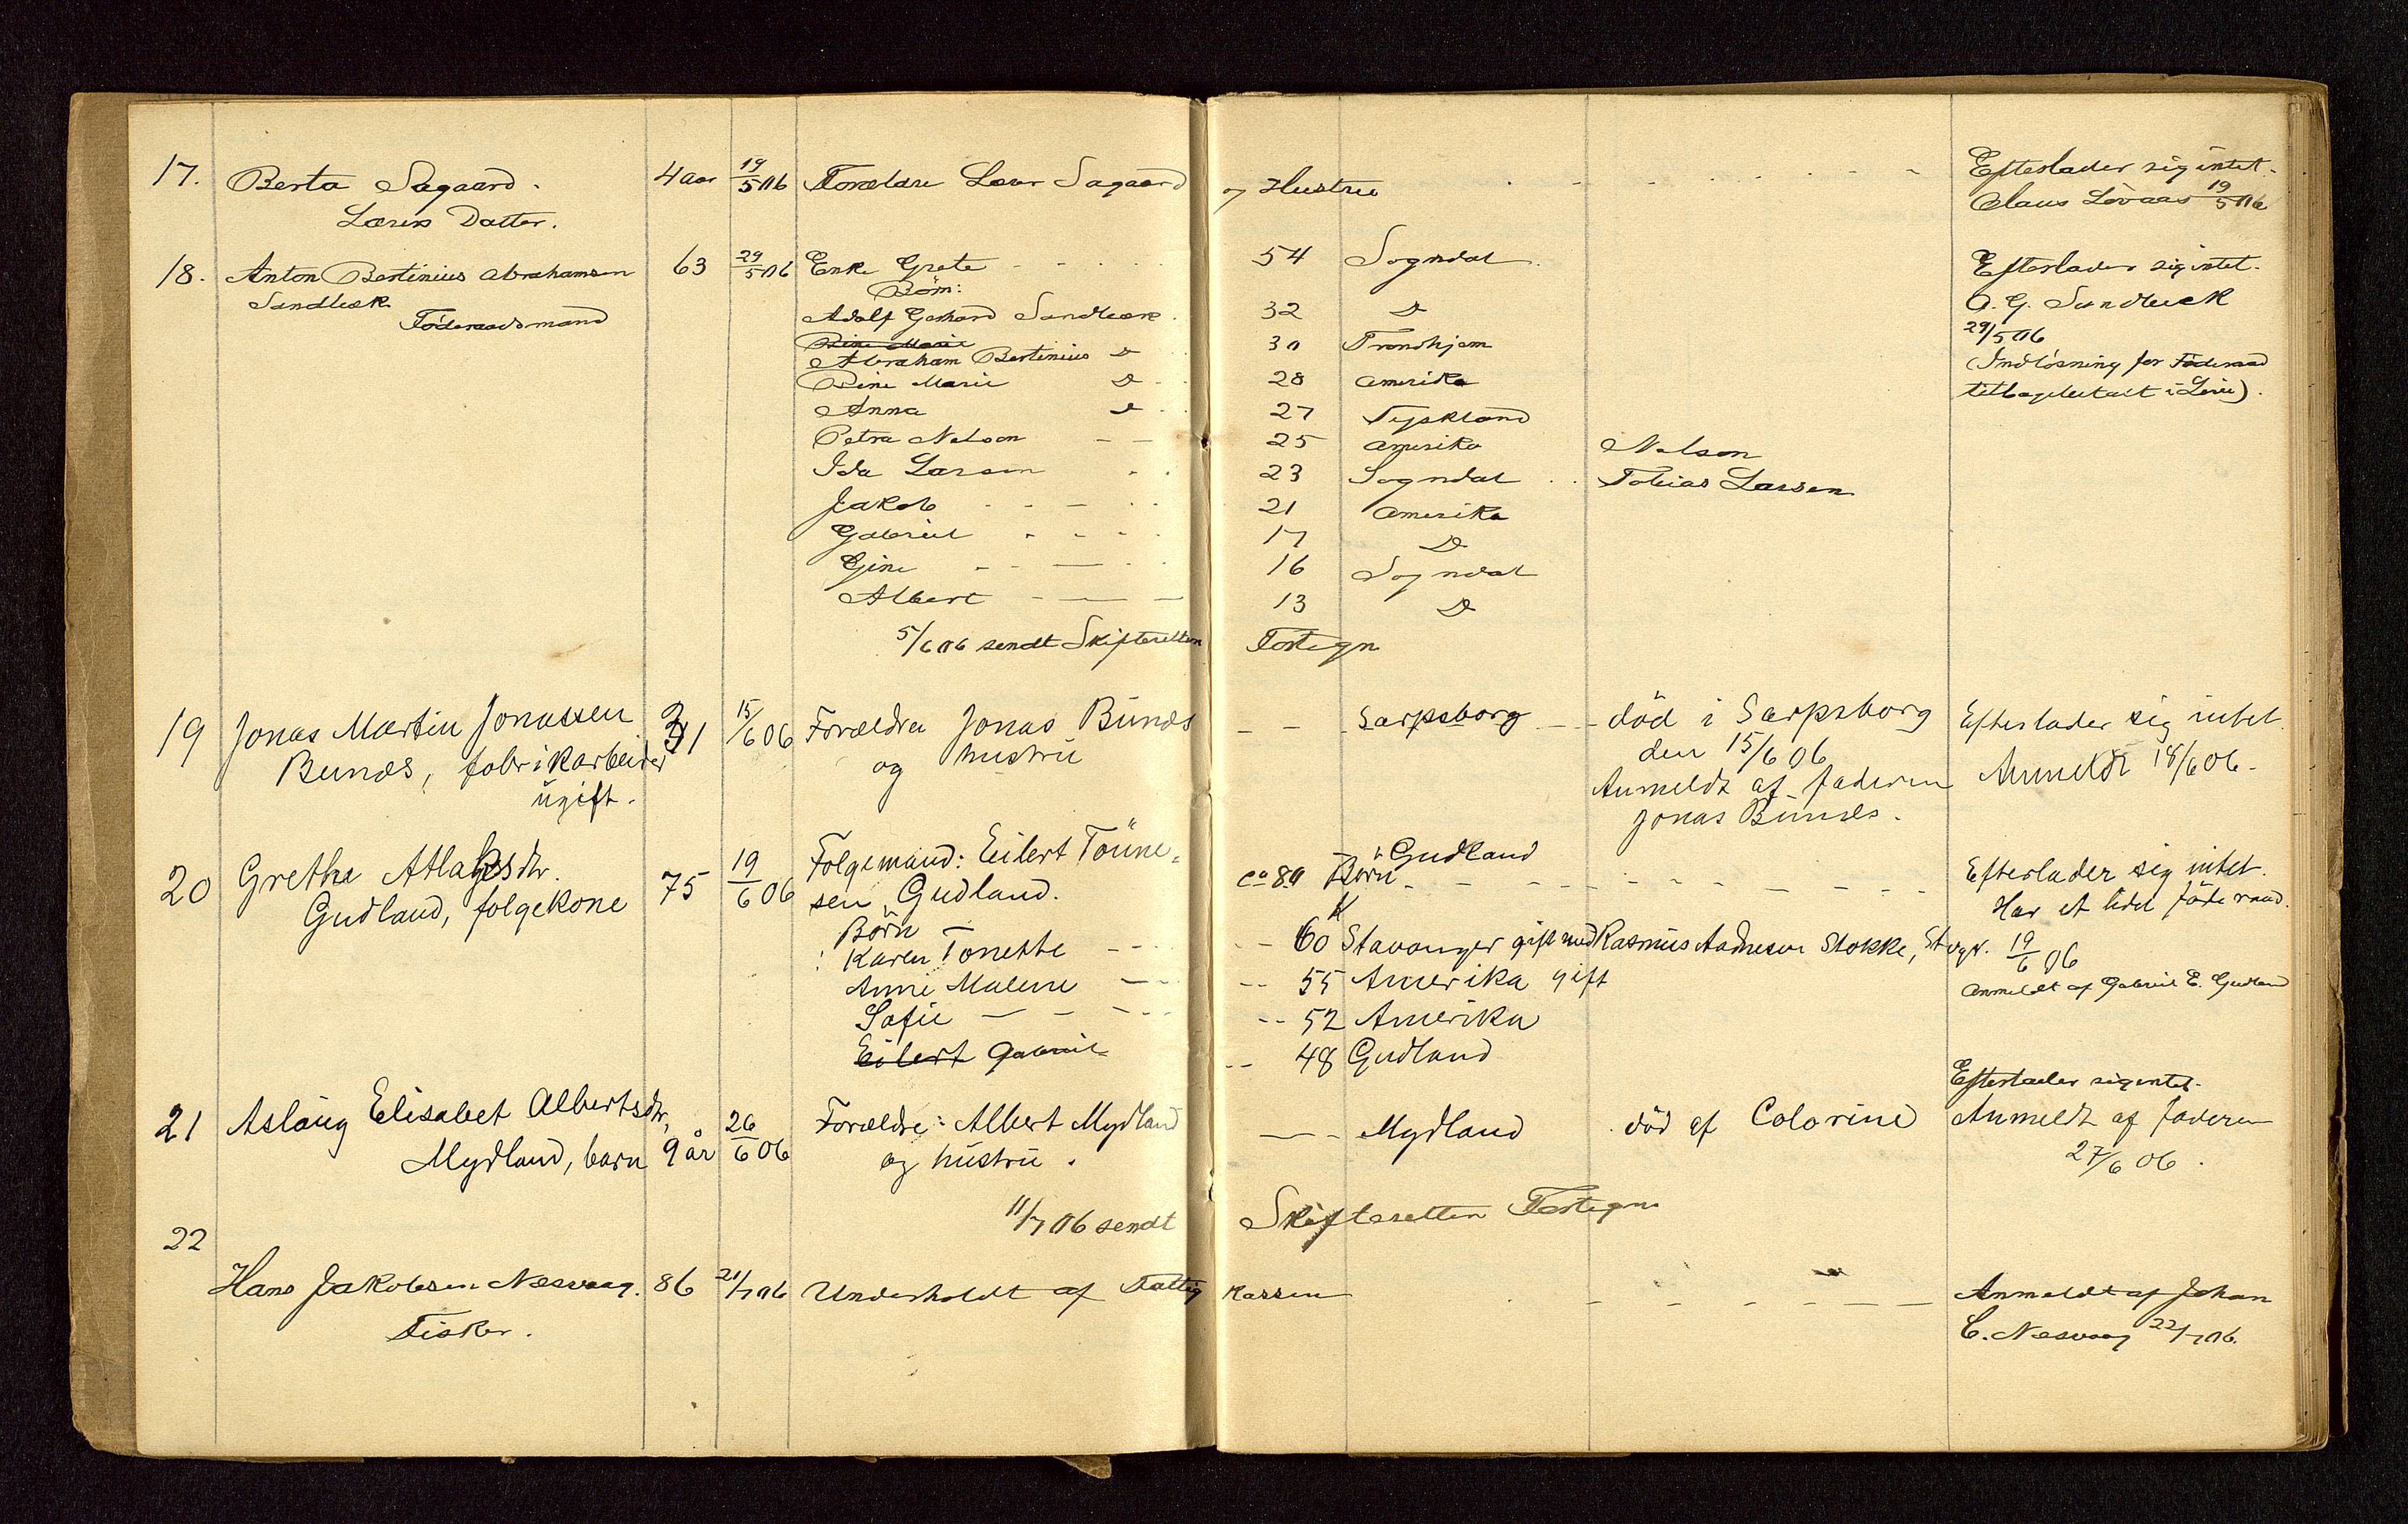 17. Berta Sagaard. 4 aar 19/5 06 Forældre Lærer Sagaard og Hustru Efterlader sig intet.
Lærers Datter. Claus Løvaas 19/5 06
18. Anton Bertinius Abrahamsen 63 29/5 06 Enke Grete 54 Sogndal Efterlader sig intet.
Sandbæk Børn: A. G. Sandbeck
Føderaadsmand Adolf Gerhard Sandbæk 32 D 29/5 06
Sine Marie
Abraham Bertinius D 30 Trondhjem (Indløsning for Føderaad
Sine Marie D 28 Amerika tilbagebetalt i Live).
Anna D 27 Tyskland
Petra Nelson 25 Amerika Nelson
Ida Larsen 23 Sogndal Tobias Larsen
Jakob 21 Amerika
Gabriel 17 D
Gine 16 Sogndal
Albert 13 D
5/6 06 sendt Skifteretten Fortegn
19 Jonas Martin Jonassen 31 15/6 06 Forældre Jonas Bunes Sarpsborg død i Sarpsborg Efterlader sig intet.
Bunes, fabrikarbeider og hustru den 15/6 06 Anmeldt 18/6 06.
ugift. Anmeldt af faderen
Jonas Bunes.
20 Grethe Atlaksdtr. 75 19/6 06 Folgemand: Eilert Tönne- ca 80 Gudland Efterlader sig intet.
Gudland, folgekone sen Gudland. Börn Har et lidet föderaad.
Börn
: Karen Tonette 60 Stavanger gift med Rasmus Aadnesen Stokke, Stvgr. 19/6 06
Anne Malene 55 Amerika gift Anmeldt af Gabriel E. Gudland
Sofie 52 Amerika
Eilert Gabriel 48 Gudland
Efterlader sig intet.
21 Aslaug Elisabet Albertsdtr, 9 år 26/6 06 Forældre: Albert Mydland Mydland död af Colorine Anmeldt af faderen
Mydland, barn og hustru. 27/6 06.
11/7 06 sendt Skifteretten Fortegn
22
Hans Jakobsen Nesvaag. 86 21/7 06 Underholdt af Fattig kassen Anmeldt af Johan
Fisker. C. Nesvaag 22/7 06.